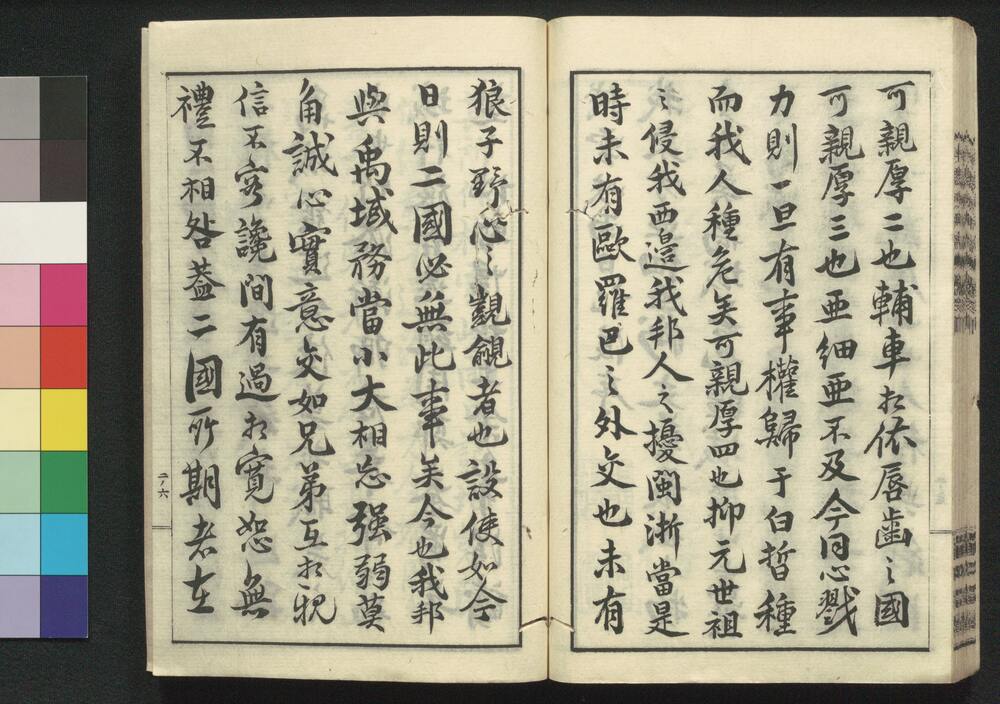 可親厚二也輔車相依唇齒之國
可親厚三也亞細亞不及今同心戮
力則一旦有事權歸于白晳種
而我人種危矣可親厚四也抑元世祖
之侵我西邉我邦人之擾閩浙當是
時未有歐羅巴之外交也未有
狼子野心之覬覦者也設使如今
日則二國必無此事矣今也我邦
與禹域務當小大相忘强弱莫
角誠心實意交如兄弟互相親
信不容讒間有過相寛恕無
禮不相咎蓋二國所期者在
二ノ六